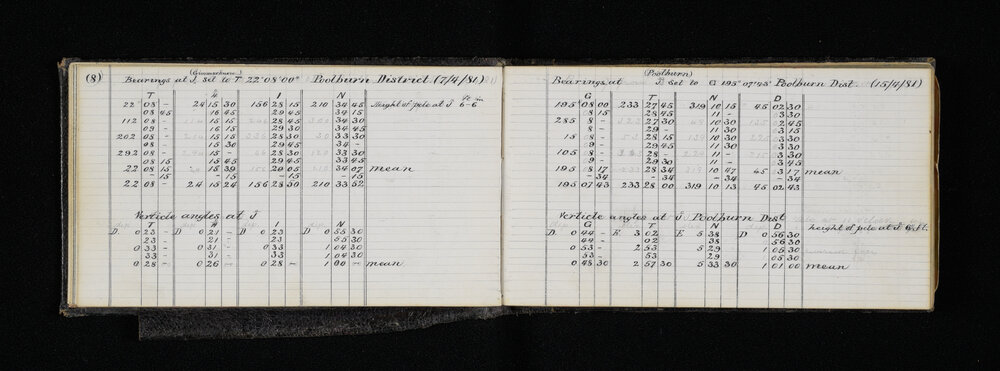 (8)
Bearings at J, set to T 22° 08' 00" Poolburn District (7/4/81)
T H I N
22 08 - 24 15 30 156 28 15 210 34 45 Height of pole at J 6-6
08 45 16 45 29 45 34 15
112 08 - 15 15 28 45 34 30
09 - 16 15 29 30 34 45
202 08 - 15 15 28 30 33 30
08 - 15 30 29 45 34 -
292 08 - 15 15 28 30 33 30
08 15 15 45 29 45 33 45
22 08 15 15 39 34 07 mean
- 15 - 15 - 15 - 15
22 08 - 24 15 24 156 28 50 210 33 52
Verticle angles at J
T H I N
D 0 23 - D 0 21 - D 0 23 D 0 55 30
23 - 21 - 23 55 30
0 33 - 0 31 - 0 33 1 04 30
33 - 31 - 33 1 04 30
0 28 - 0 26 - 0 28 - 1 00 - mean
(Poolburn)
Bearings at J, set to G 195° 07' 43" Poolburn Dist (15/4/81)
G T N D
195 08 00 233 27 45 319 10 15 45 02 30
8 15 28 45 11 - 3 30
285 8 - 27 30 10 30 2 45
8 - 29 - 11 30 3 15
15 8 - 28 15 10 30 2 30
9 - 29 45 11 30 3 30
105 8 - 28 - 11 - 3 30
9 - 29 30 11 - 3 45
195 08 17 28 34 10 47 45 3 17 mean
- 34 - 34 - 34 - 34
195 07 43 233 28 00 319 10 13 45 02 43
Verticle angles at J Poolburn Dist
G T N D height of pole at J 6 ft.
D 0 44 - E 3 02 E 5 38 D 0 56 30
44 - 02 38 56 30
0 53 - 2 53 5 29 1 05 30
53 - 53 29 1 05 30
0 48 30 2 57 30 5 33 30 1 01 00 mean